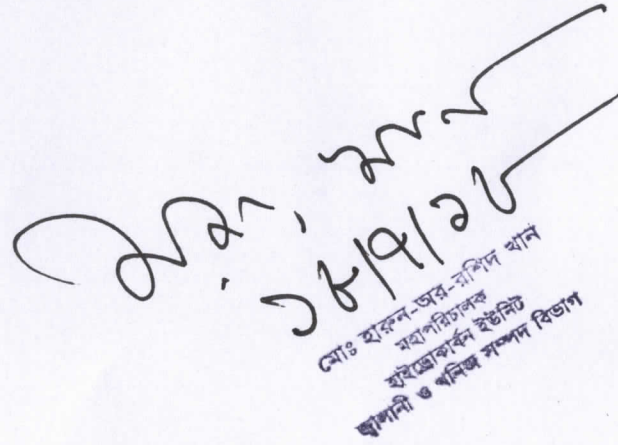 ১৮/৭/১৮
মোঃ হারুন-অর-রশিদ খান
মহাপরিচালক
হাইড্রোকার্বন ইউনিট
জ্বালানী ও খনিজ সম্পদ বিভাগ